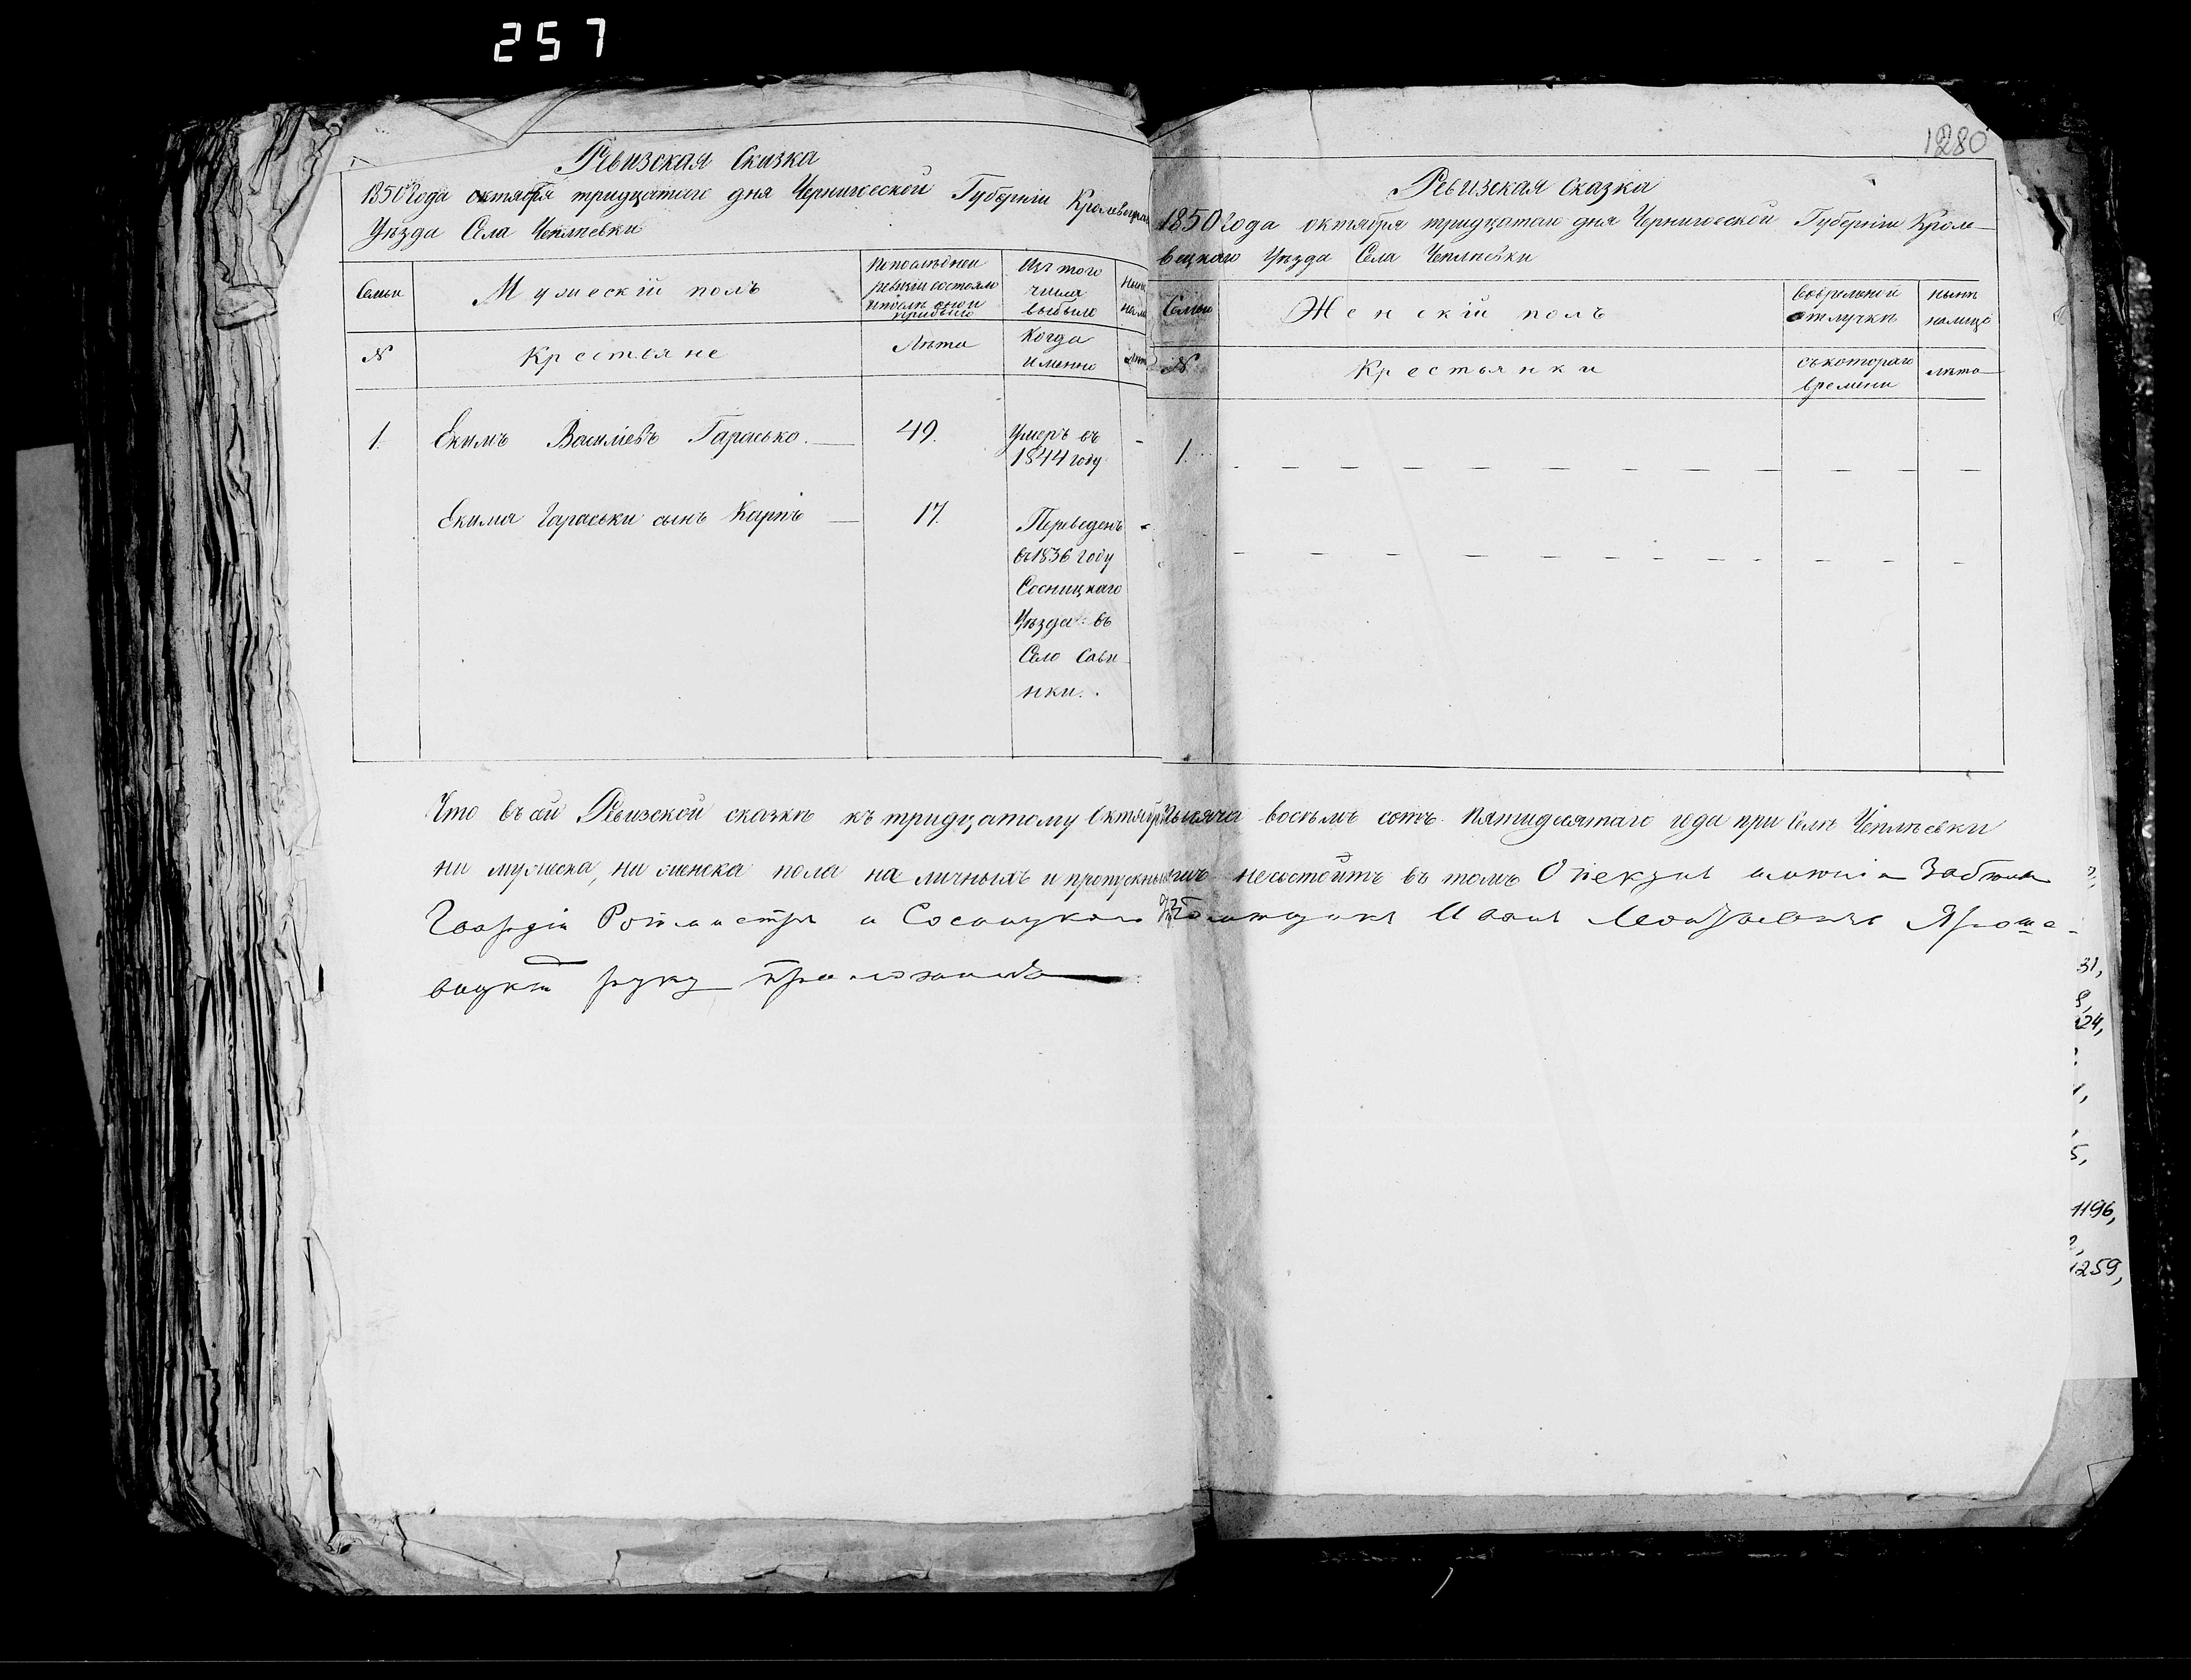 257
Ревизская Сказка
1850 года октября тридцатаго дня Черниговской Губерніи Кролевецкаго
Уѣзда Села Чепліевки
Семьи
Мужескій полъ
По послѣдней
ревизіи состояло
и послѣ оной
прибыло
Изъ того
числа
выбыло
№
Крестьяне
Лѣта
Когда
именно
1.
Екимъ Василіевъ Гарасько.
49.
Умеръ въ
1844 году
Екима Гараськи сынъ Карпъ
17.
Переведенъ
въ 1836 году
Сосницкаго
Уѣзда въ
Село Сави
нки.
1280
Ревизская Сказка
1850 года октября тридцатаго дня Черниговской Губерніи Кроле-
вецкаго Уѣзда Села Чепліевки
Семьи
Женскій полъ
Во временной
отлучкѣ
нынѣ
на лицо
№
Крестьянки
съ котораго
времени
лѣта
1.
Что въ сей Ревизской сказкѣ къ тридцатому Октября тысяча восемъ сотъ пятидесятаго года при Селѣ Чепліевки
ни мужеска, ни женска пола на личныхъ и пропускныхъ несостоитъ въ томъ Опекунъ имѣнія
Гвардіи Ротмистръ и Сосницкаго Иванъ Яроше-
вицкій руку приложилъ
31,
24,
5,
1196,
1259,